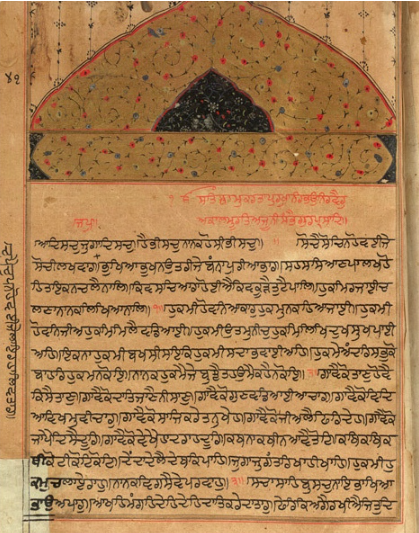 ੴ ਸਤਿਨਾਮੁਕਰਤਾਪੁਰਖੁਨਿਰਭਉਨਿਰਵੈਰੁ
ਅਕਾਲਮੂਰਤਿਅਜੂਨੀਸੈਭੰਗੁਰਪ੍ਰਸਾਦਿ॥
ਜਪੁ॥
॥ਆਦਿਸਚੁਜੁਗਾਦਿਸਚੁ॥ਹੈਭੀਸਚੁਨਾਨਕਹੋਸੀਭੀਸਚੁ॥ ਸੋਚੈਸੋਚਿਨਹੋਵਈਜੇ
ਸੋਚੀਲਖਵਾਰ॥ਭੁਖਿਆਭੁਖਨਉਤਰੀਜੇਬੰਨਾਪੁਰੀਆਭਾਰ॥ਸਹਸਸਿਆਣਪਾਲਖਹੋ
ਹਿਤਇਕਨਚਲੈਨਾਲਿ॥ਕਿਵਸਚਿਆਰਾਹੋਈਐਕਿਵਕੂੜੈਤੁਟੈਪਾਲਿ॥ਹੁਕਮਿਰਜਾਈਚ
ਲਣਾਨਾਨਕਲਿਖਿਆਨਾਲਿ॥੧॥ਹੁਕਮੀਹੋਵਨਿਆਕਾਰਹੁਕਮੁਨਕਹਿਆਜਾਈ॥ਹੁਕਮੀ
ਹੋਵਨਿਜੀਅਹੁਕਮਿਮਿਲੈਵਡਿਆਈ॥ਹੁਕਮੀਉਤਮੁਨੀਚੁਹੁਕਮਿਲਿਖਿਦੁਖਸੁਖਪਾਈ
ਅਹਿ॥ਇਕਨਾਹੁਕਮੀਬਖਸੀਸਇਕਿਹੁਕਮੀਸਦਾਭਵਾਈਅਹਿ॥ਹੁਕਮੈਅੰਦਰਿਸਭੁਕੋ
ਬਾਹਰਿਹੁਕਮਨਕੋਇ॥ਨਾਨਕਹੁਕਮੈਜੇਬੁਝੈਤਹਉਮੈਕਹੈਨਕੋਇ॥੨॥ਗਾਵੈਕੋਤਾਣੁਹੋਵੈ
ਕਿਸੈਤਾਣੁ॥ਗਾਵੈਕੋਦਾਤਿਜਾਣੈਨੀਸਾਣੁ॥ਗਾਵੈਕੋਗੁਣਵਡਿਆਈਆਚਾਰ॥ਗਾਵੈਕੋਵਿਦਿ
ਆਵਿਖਮੁਵੀਚਾਰੁ॥ਗਾਵੈਕੋਸਾਜਿਕਰੇਤਨੁਖੇਹ॥ਗਾਵੈਕੋਜੀਅਲੈਫਿਰਿਦੇਹ॥ਗਾਵੈਕੋ
ਜਾਪੈਦਿਸੈਦੂਰਿ॥ਗਾਵੈਕੋਵੇਖੈਹਾਦਰਾਹਦੂਰਿ॥ਕਥਨਾਕਥੀਨਆਵੈਤੋਟਿ॥ਕਥਿਕਥਿਕ
ਥੀਕੋਟੀਕੋਟਿਕੋਟਿ॥ਦੇਂਦਾਦੇਲੈਦੇਥਕਿਪਾਹਿ॥ਜੁਗਾਜੁਗੰਤਰਿਖਾਹੀਖਾਹਿ॥ਹੁਕਮੀਹੁ
ਕਮੁਚਲਾਏਰਾਹੁ॥ਨਾਨਕਵਿਗਸੈਵੇਪਰਵਾਹੁ॥੩॥ਸਾਚਾਸਾਹਿਬੁਸਾਚੁਨਾਇਭਾਖਿਆ
ਭਾਉਅਪਾਰੁ॥ਆਖਹਿਮੰਗਹਿਦੇਹਿਦੇਹਿਦਾਤਿਕਰੇਦਾਤਾਰੁ॥ਫੇਰਿਕਿਅਗੈਰਖੀਐਜਿਤੁਦਿ
ਚੁਪੈਚੁਪਨਹੋਵਈਜੇਲਾਇਰਹਾਲਿਵਤਾਰ॥